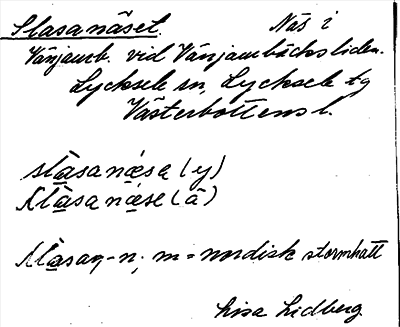 Slasanäset. Näs i
Vänjaurb. vid Vänjaurbäcksliden.
Lycksele sn, Lycksele tg
Västerbottens l.
slàsanǽsa (y)
Slàsanǽse (ä)
Slàsaŋ-n; m = nordisk stormhatt
Lisa Lidberg